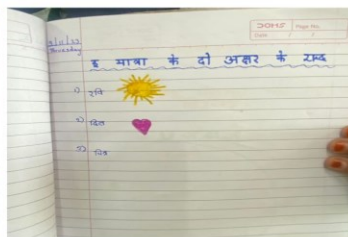 Page No.
Date
Thursday
इ मात्रा के दो अक्षर के शब्द
१) रवि
२) दिल
३)